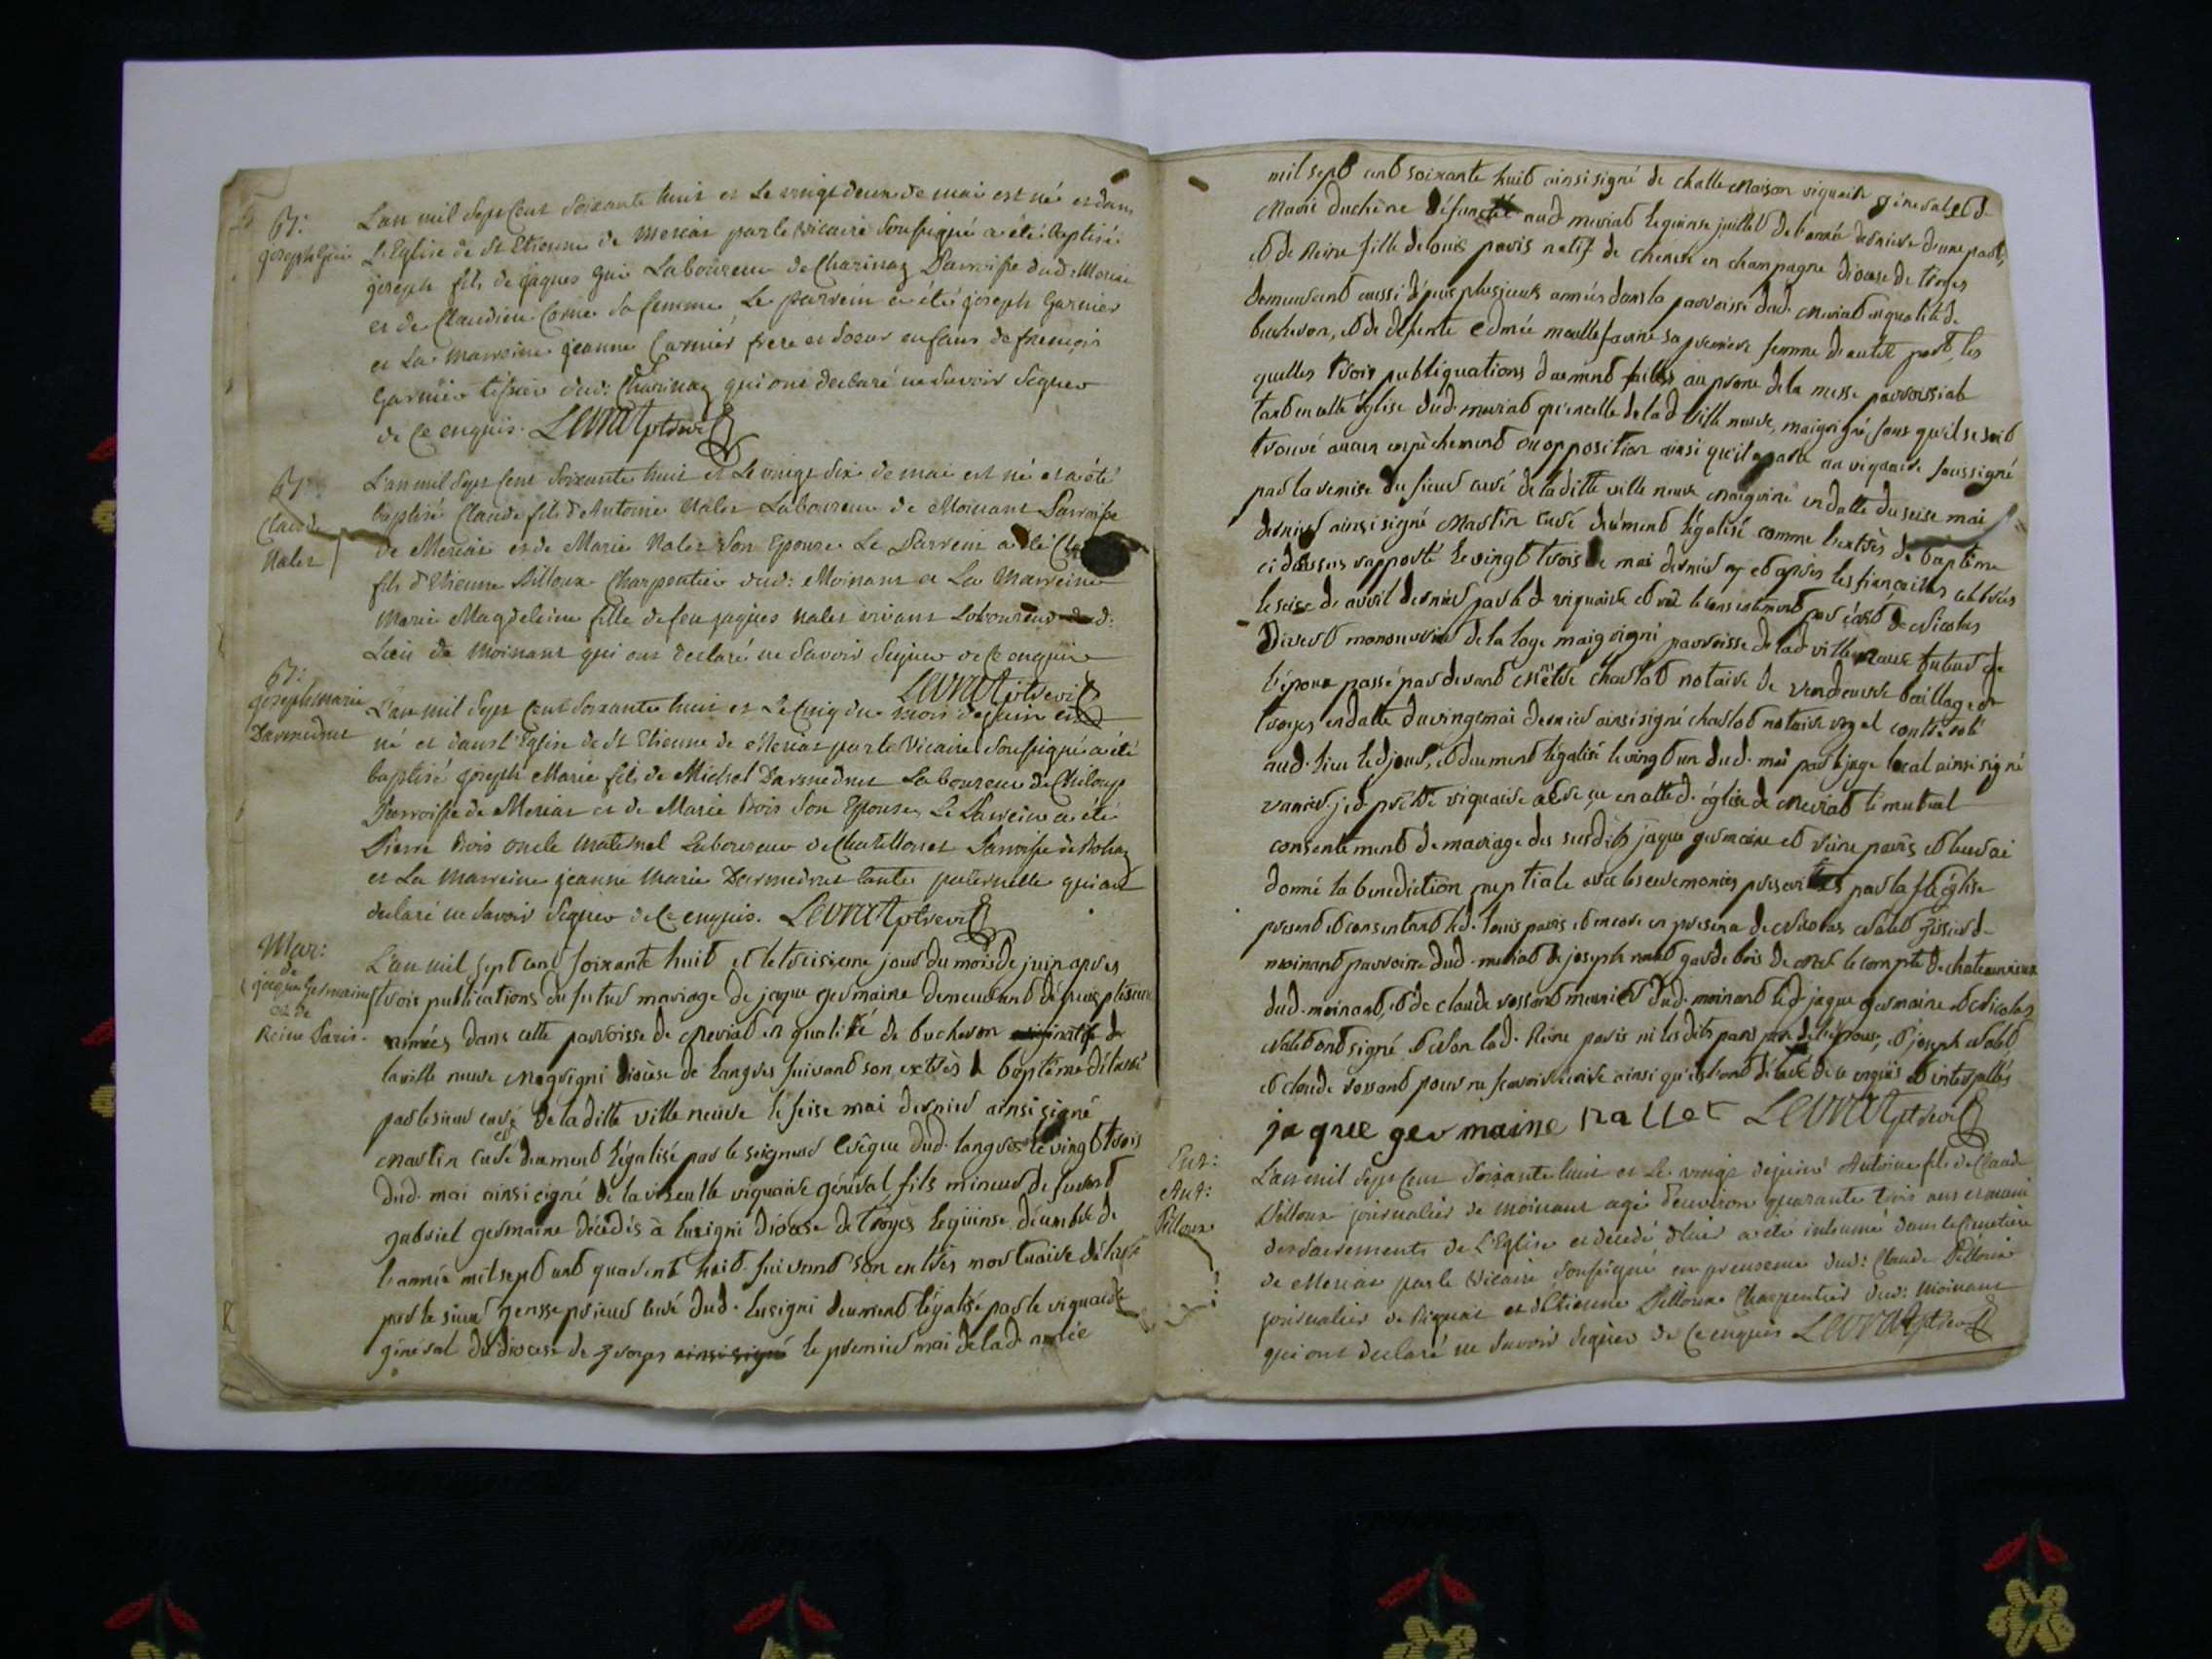 B:
joseph Gui
L'an mil sept Cent soixante huit et Le vingt deux de mai est né et dans
L'Eglise de St Etienne de Meriat par le Vicaire soussigné a été baptisé
joseph fils de jaques gui Laboureur de Charinaz Parroisse dud: Meriat
et de Claudine Corne sa femme, Le parrein a été joseph Garnier
et La marreine jeanne Garnier frere et soeur enfans de françois
Garnier tissier dud: Charinaz qui ont declaré ne savoir signer
de Ce enquis. Levrat ptre vic
B:
Claude
Nalet
L'an mil sept Cent soixante huit et Le vingt six de mai est né et a été
baptisé Claude fils d'Antoine Nalet Laboureur de Moinant Parroisse
de Meriat et de Marie Nalet son Epouse Le Parrein a été
fils d'Etienne Pilloux Charpentier dud: Moinant et La Marreine
Marie Magdeleine fille de feu jaques Nalet vivant Laboureur dud:
Lieu de Moinant qui ont declaré ne savoir signer de Ce enquis
Levrat ptre vic
B:
joseph marie
Darmedrut
L'an mil sept Cent soixante huit et Le Cinq du mois de juin est
né et dans l'Eglise de St Etienne de Meriat par le Vicaire soussigné a été
baptisé joseph Marie fils de Michel Darmedrut Laboureur de Chiloup
Parroisse de Meriat et de Marie Bois son Epouse, Le Parrein a été
Pierre Bois oncle maternel Laboureur de Chatillonet Parroisse de Bohaz
et La Marreine jeanne Marie Darmedrut tante paternelle qui ont
declaré ne savoir signer de Ce enquis. Levrat ptre vic
Mar:
de
jaque Germaine
et de
Reine Paris.
L'an mil sept cent soixante huit et le treisieme jour du mois de juin apres
trois publications du futur mariage de jaque germaine demeurant depuis plusieurs
années dans cette parroisse de Meriat en qualité de bucheron natif de
la ville neuve Megrigni diocèse de Langres suivant son extrès de baptême délivré
par le sieur curé de la ditte ville neuve le seise mai dernier ainsi signé
Martin curé duement légalisé par le seigneur Evêque dud. langres le vingt trois
dud. mai ainsi signé de la viguaire général fils mineur de furent
gabriel germaine décédés à lusigni diocèse de Troyes le quinse décembre de
l'année mil sept cent quarente huit suivant son extrès mortuaire délivré
par le sieur prieur curé dud. lusigni duement légalisé par le viguaire
général du diocese de Troyes ainsi signé le premier mai de lad. année
mil sept cent soixante huit ainsi signé de challe maison viguaire général et de
Marie duchène défuncte aud. meriat le quinse juillet de l'année derniere d'une part,
et de Reine fille de louis paris natif de en champagne diocese de troyes
demeurant aussi depuis plusieurs années dans la parroisse dud. Meriat en qualité de
bucheron, et de défunte edmée sa premiere femme d'autre part, les
quelles trois publiquations duement faittes au prone de la messe parroissiale
tant en cette église dud. meriat qu'en celle de lad. ville neuve, maigrigni, sans qu'il se soit
trouvé aucun empêchement ou opposition ainsi qu'il apert au viguaire soussigné
par la remise du sieur curé de laditte ville neuve maigrini en datte du seise mai
dernier ainsi signé Martin curé duement légalisé comme l'extrès de baptême
ci dessus rapporté le vingt trois de mai dernier et après les fiançailles célébrées
le seise d'avril dernier par led. viguaire et vu le consentement par écrit de Nicolas
manouvrier de la loge maigrigni parroisse de lad. ville neuve tuteur de
l'époux passé par devant Me charlot notaire de vendeuvre baillage de
troyes en datte du vingt mai dernier ainsi signé charlot notaire royal contrerolé
aud. lieu led jour, et duement légalisé le vingt un dud. mai par le juge local ainsi signé
je d. prêtre viguaire ai reçu en cette d. église de Meriat le mutuel
consentement de mariage des susdits jaque germaine et reine paris et leur ai
donné la benediction nuptiale avec les ceremonies prescrittes par la ste église
present et consentant led. louis paris et encore en presence de Nicolas Nalet tissier de
moinant parroisse dud. meriat de joseph nalet garde bois de Mr le compte de chateauvieux
dud. moinant, et de claude rossant meunier dud. moinant led. jaque germaine et Nicolas
Nalet ont signé et non lad. Reine paris ni led. louis paris père de l'épouse, et joseph nalet
et claude rossant pour ne scavoir écrire ainsi qu'ils ont déclaré de ce enquis et interpellés
jaque germaine nallet Levrat ptre vic
Ent:
Ant:
Pilloux
L'an mil sept Cent soixante huit et Le vingt de juin Antoine fils de Claude
Pilloux journalier de moinant agé d'environ quarante trois ans et muni
des sacrements de L'Eglise et decedé d'hier a été inhumé dans le Cimetiere
de Meriat par le Vicaire soussigné en presence dud: Claude Pilloux
journalier de et d'Etienne Pilloux Charpentier dud: Moinant
qui ont declaré ne savoir signer de Ce enquis Levrat ptre vic